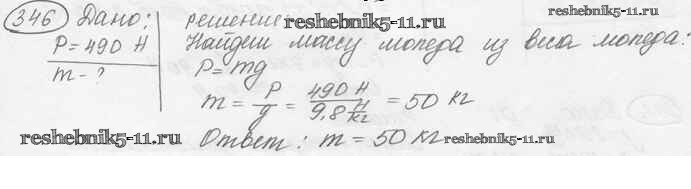 346 Дано: Решение: reshebnik5-11.ru reshebnik5-11.ru
P = 490 Н Найдем массу мопеда из веса мопеда:
m - ? P = mg
m = P/g = 490 Н / 9,8 Н/кг = 50 кг
reshebnik5-11.ru Ответ: m = 50 кг reshebnik5-11.ru